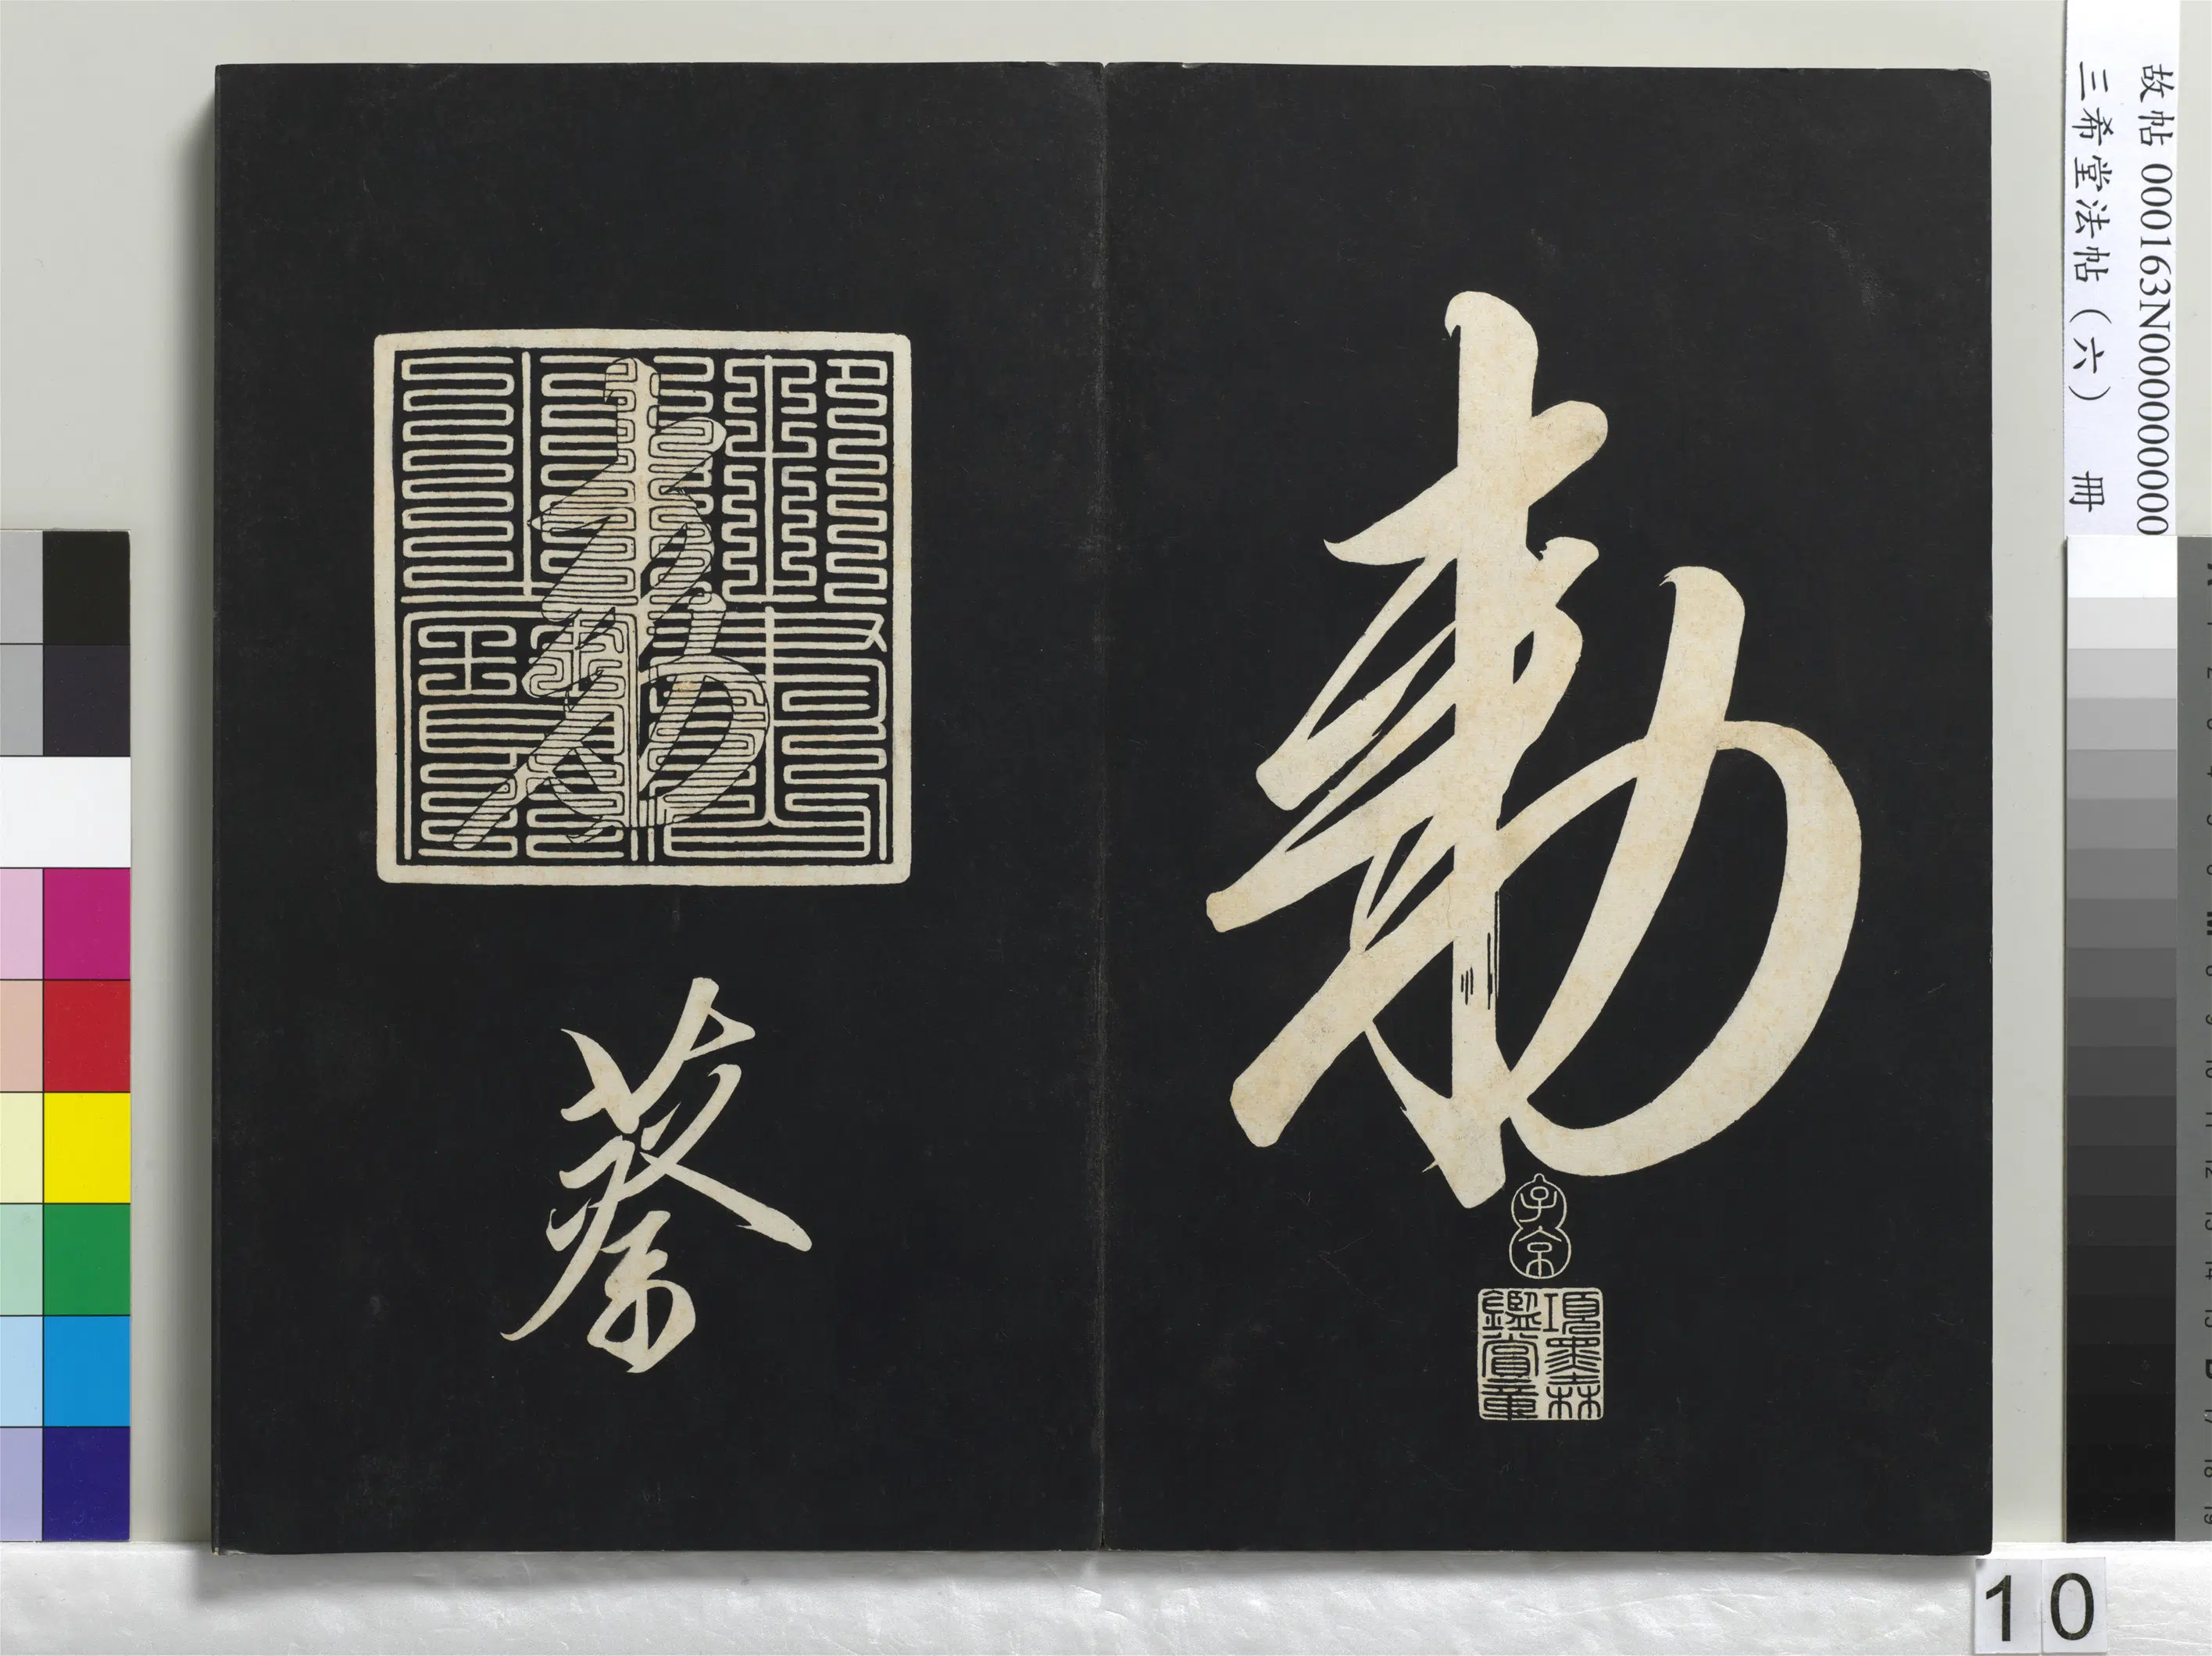 故帖 000163N000000000
三希堂法帖（六） 冊
勅
子京
項墨林
鑑賞章
勅
蔡
10